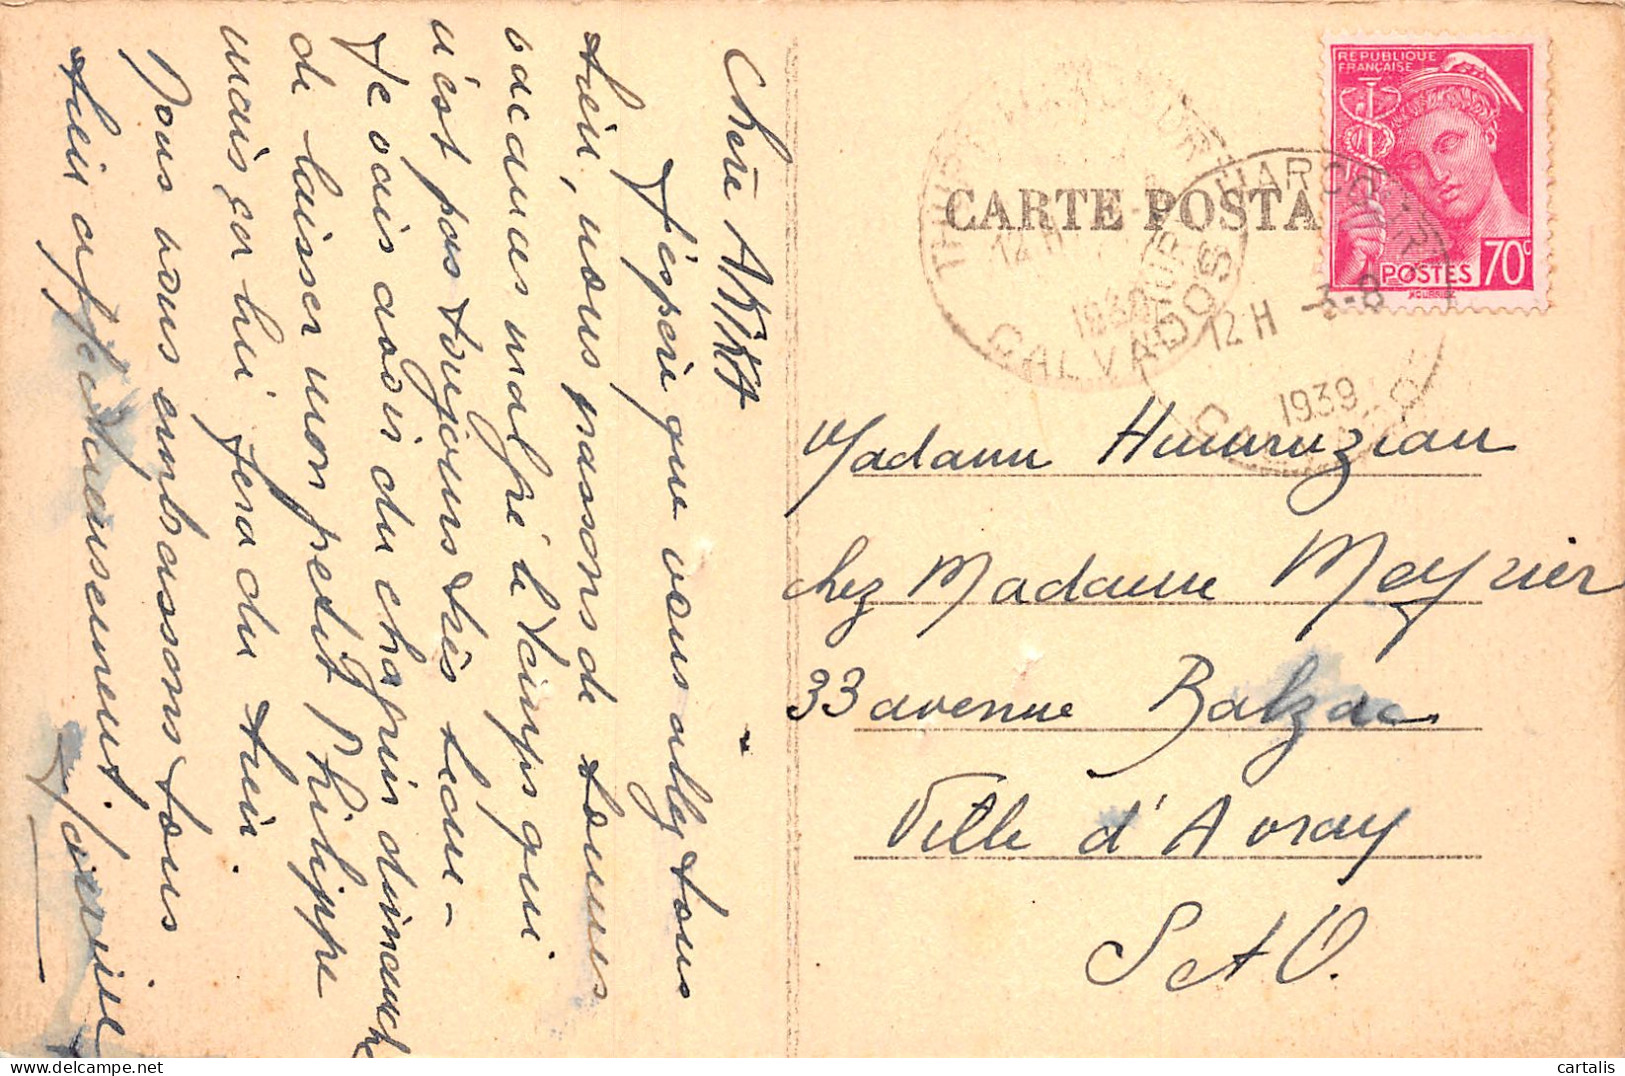 Chère
J'espère que vous allez tous
bien, nous passons de bonnes
vacances malgré le temps qui
n'est pas toujours très beau -
Je vais avoir du chagrin dimanche
de laisser mon petit Philippe
mais ça lui fera du bien.
Nous vous embrassons tous
bien affectueusement.
CARTE POSTA
REPUBLIQUE
FRANÇAISE
POSTES 70c
THURY HARCOURT
12 H
CALVADOS
HARCOURT
12 H 3-8
1939
Madame
chez Madame Meynier
33 avenue Balzac
Ville d'Avray
S et O.
cartalis